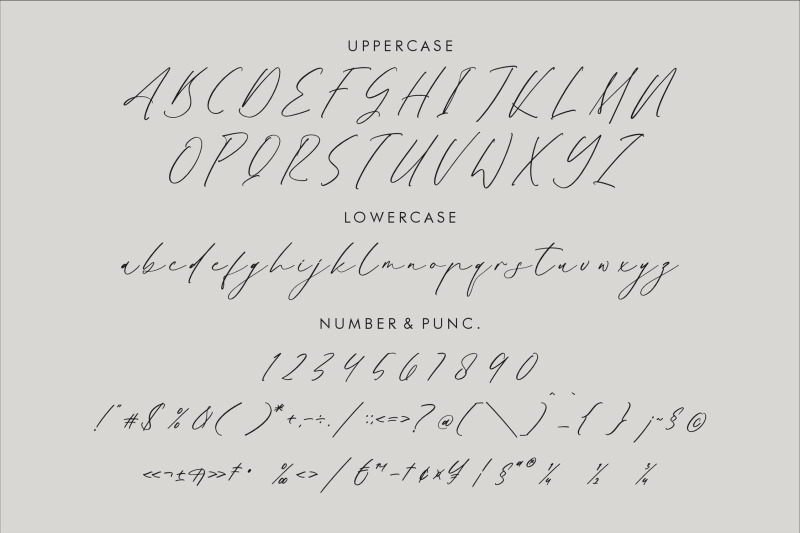 UPPERCASE
A B C D E F G H I J K L M N
O P Q R S T U V W X Y Z
LOWERCASE
a b c d e f g h i j k l m n o p q r s t u v w x y z
NUMBER & PUNC.
1 2 3 4 5 6 7 8 9 0
! " # $ % & ( ) * + , - ÷ . / : ; < = > ? @ [ \ ] ^ _ ` { } ¡ ~ § ©
« ¬ ± » ‡ • ‰ < > / € ™ – † ¢ × ¥ ¦ § ª ® ¼ ½ ¾